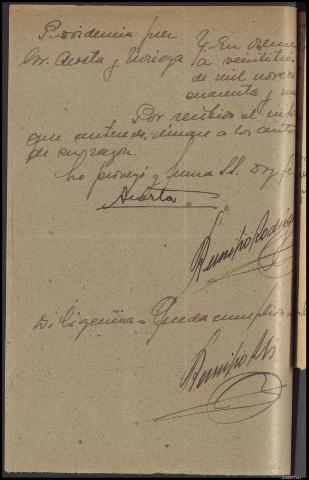 Providencia juez
Sr. Acosta y Noriega
Y En
a veintitrés
de mil novec
cuarenta y
Por recibido el info
que antecede, únase a los autos
de su razón.
Lo proveyó y firma SS. Doy fe
Acosta
Remigio Rodrig
Diligencia = Queda cumplido
Remigio